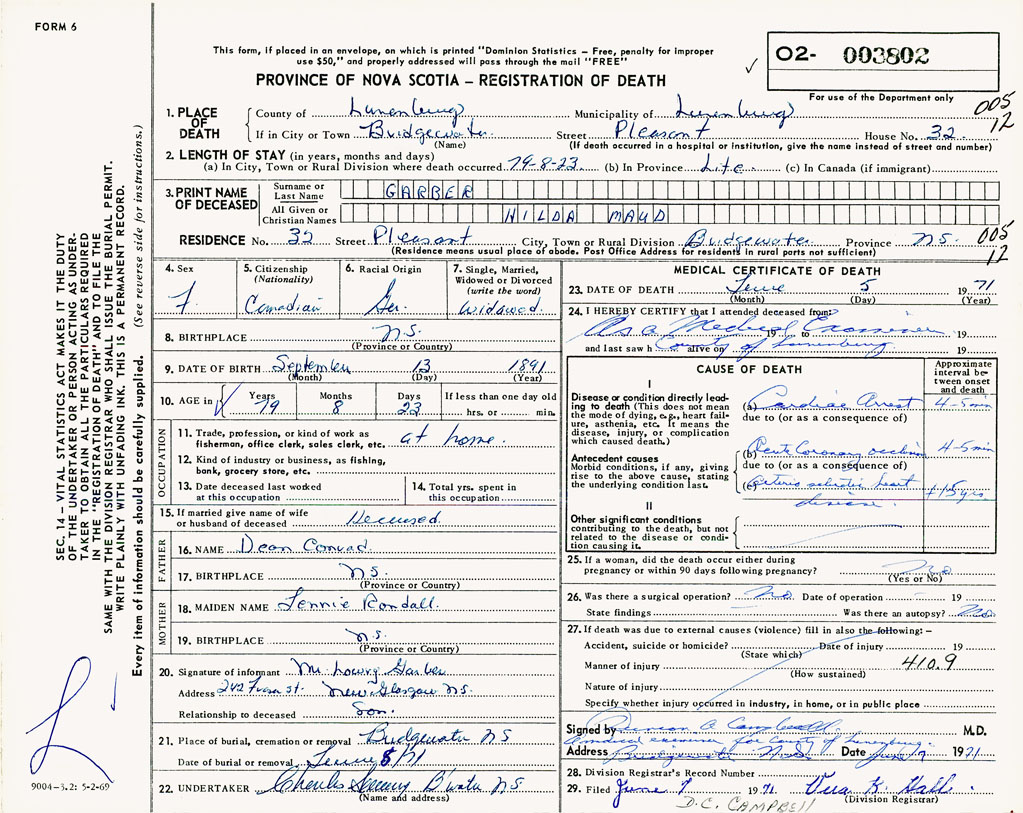 FORM 6
This form, if placed in an envelope, on which is printed "Dominion Statistics – Free, penalty for improper
use $50," and properly addressed will pass through the mail "FREE"
PROVINCE OF NOVA SCOTIA – REGISTRATION OF DEATH
✓ O2- 003802
For use of the Department only
005
12
1. PLACE OF DEATH
County of Lunenburg Municipality of Lunenburg
If in City or Town Bridgewater Street Pleasant House No. 32
(Name) (If death occurred in a hospital or institution, give the name instead of street and number)
2. LENGTH OF STAY (in years, months and days)
(a) In City, Town or Rural Division where death occurred 79-8-23 (b) In Province Life (c) In Canada (if immigrant)
3. PRINT NAME OF DECEASED
Surname or Last Name GARBER
All Given or Christian Names HILDA MAUD
RESIDENCE No. 32 Street Pleasant City, Town or Rural Division Bridgewater Province N.S. 005
12
(Residence means usual place of abode. Post Office Address for residents in rural parts not sufficient)
4. Sex
F.
5. Citizenship
(Nationality)
Canadian
6. Racial Origin
Ger.
7. Single, Married,
Widowed or Divorced
(write the word)
Widowed.
8. BIRTHPLACE N.S.
(Province or Country)
9. DATE OF BIRTH September 13 1891
(Month) (Day) (Year)
10. AGE in Years Months Days If less than one day old
79 8 23 hrs. or min.
OCCUPATION
11. Trade, profession, or kind of work as
fisherman, office clerk, sales clerk, etc. at home.
12. Kind of industry or business, as fishing,
bank, grocery store, etc.
13. Date deceased last worked
at this occupation
14. Total yrs. spent in
this occupation
15. If married give name of wife
or husband of deceased Deceased.
FATHER
16. NAME Dean Conrad
17. BIRTHPLACE N.S.
(Province or Country)
MOTHER
18. MAIDEN NAME Jennie Rondall.
19. BIRTHPLACE N.S.
(Province or Country)
20. Signature of informant Mr. Lowry Garber
Address 242 St. New Glasgow N.S.
Relationship to deceased Son.
21. Place of burial, cremation or removal Bridgewater N S
Date of burial or removal June 8/71
22. UNDERTAKER Charles B'water N S
(Name and address)
MEDICAL CERTIFICATE OF DEATH
23. DATE OF DEATH June 5 1971
(Month) (Day) (Year)
24. I HEREBY CERTIFY that I attended deceased from:
As a Medical Examiner 19 to 19
and last saw h alive on County of Lunenburg. 19
CAUSE OF DEATH
Approximate
interval be-
tween onset
and death
I
Disease or condition directly lead-
ing to death (This does not mean
the mode of dying, e.g., heart fail-
ure, asthenia, etc. It means the
disease, injury, or complication
which caused death.)
(a) Cardiac Arrest 4-5 min
due to (or as a consequence of)
Antecedent causes
Morbid conditions, if any, giving
rise to the above cause, stating
the underlying condition last.
(b) Acute Coronary occlusion 4-5 min
due to (or as a consequence of)
(c) Arteriosclerotic heart
disease. +15 yrs
II
Other significant conditions
contributing to the death, but not
related to the disease or condi-
tion causing it.
25. If a woman, did the death occur either during
pregnancy or within 90 days following pregnancy? No
(Yes or No)
26. Was there a surgical operation? No. Date of operation – 19
State findings Was there an autopsy? No.
27. If death was due to external causes (violence) fill in also the following: –
Accident, suicide or homicide? Date of injury 19
(State which)
Manner of injury 410.9
(How sustained)
Nature of injury
Specify whether injury occurred in industry, in home, or in public place
Signed by Duncan A Campbell M.D.
medical examiner for County of Lunenburg.
Address Bridgewater N.S. Date June 7 1971
28. Division Registrar's Record Number
29. Filed June 7 1971 Vera K. Hall
(Division Registrar)
D.C. CAMPBELL
SEC. 14 – VITAL STATISTICS ACT MAKES IT THE DUTY
OF THE UNDERTAKER OR PERSON ACTING AS UNDER-
TAKER TO OBTAIN ALL THE PARTICULARS REQUIRED
IN THE "REGISTRATION OF DEATH" AND TO FILE THE
SAME WITH THE DIVISION REGISTRAR WHO SHALL ISSUE THE BURIAL PERMIT.
WRITE PLAINLY WITH UNFADING INK. THIS IS A PERMANENT RECORD.
Every item of information should be carefully supplied. (See reverse side for instructions.)
9004-3.2: 5-2-69